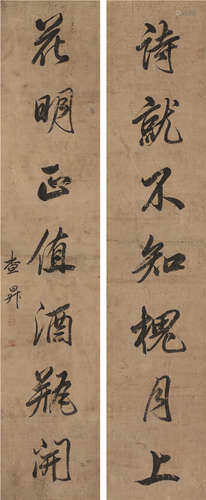 詩就不知槐月上
花明正值酒瓶開
查昇